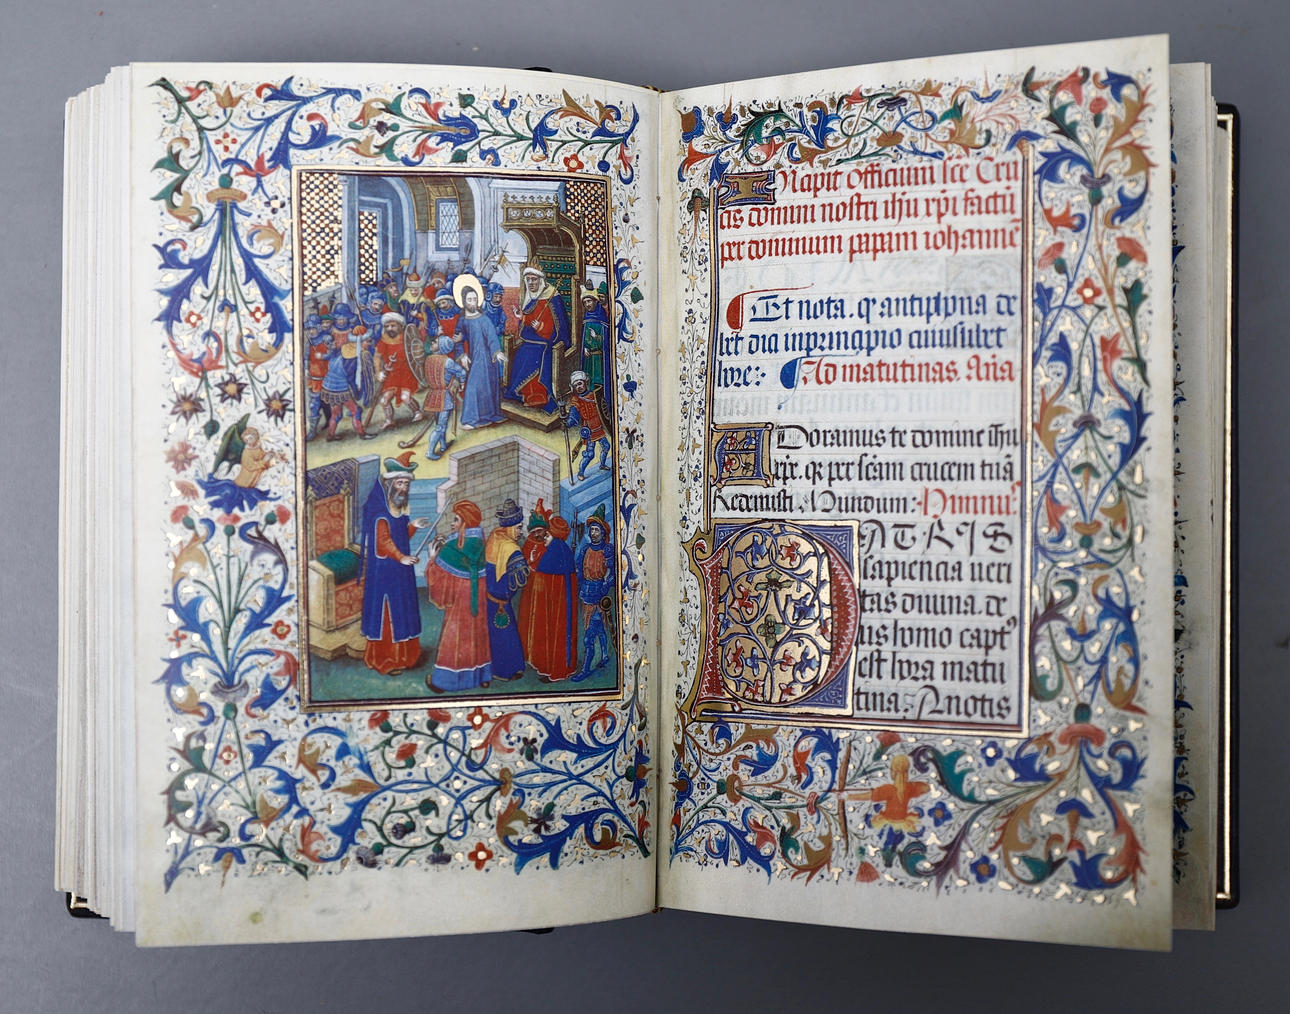 Incipit officium sce Cru
cis domini nostri ihu xpi factu
per dominum papam iohanne
Et nota. q antiphona de
bet dici inprincipio cuiuslibet
hore: Ad matutinas. Ana
Adoramus te domine ihu
xpe. q per scam crucem tua
Redemisti Mundum: Himnu
PATRIS
sapiencia veri
tas diuina. de
us homo capt
est hora matu
tina: A notis